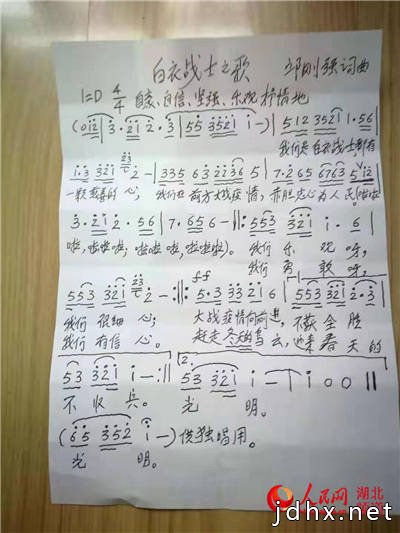 白衣战士之歌 邱刚强词曲
1=D 4/4 自豪、自信、坚强、乐观 抒情地
(0 1 2 | 3 · 2 1 2 · 3 | 5 5 3 5 2 1 1 - ) | 5 1 2 3 5 2 1 1 · 5 6 |
我们是白衣战士 都有
1 · 3 3 2 1 2 - | 3 3 5 6 3 2 2 3 6 5 | 7 · 2 6 5 6 7 6 3 5 1 2 |
一颗 的 心, 我们在前方大战疫情, 赤胆忠心为人民(啦啦
3 · 2 1 2 · 5 6 | 7 · 6 5 6 - :| 5 5 3 3 2 1 1 · 6 |
啦, 啦啦啦, 啦啦啦 啦, 啦啦啦)。 我们 乐 观 呀,
我们 勇 敢 呀,
5 5 3 3 2 1 2 - :| 5 · 3 3 3 2 1 6 | 5 5 3 3 2 1 2 · 3 |
ff
我们 很细 心; 大战疫情向前进, 不获全胜
我们 有信 心。 赶走冬天的乌云, 迎来春天的
5 3 3 2 1 1 - :| 2. 5 3 3 2 1 1 - | 1 0 0 ||
不收兵。 光 明。
(6 5 3 5 2 1 - ) 供独唱用。
光 明。
人民网 湖北
jdhx.net